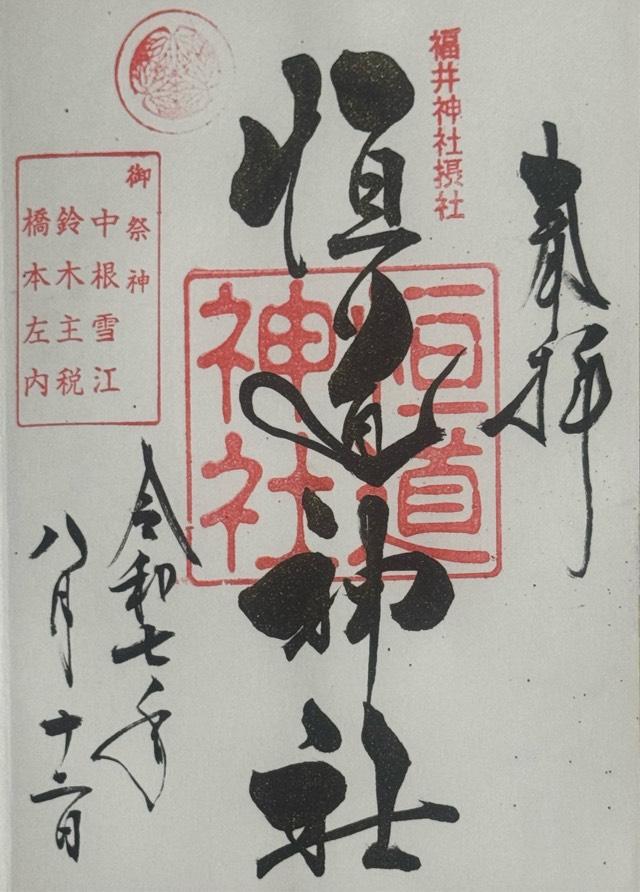 奉拝
福井神社摂社
恒道神社
恒道
神社
御祭神
中根雪江
鈴木主税
橋本左内
令和七年
八月十二日